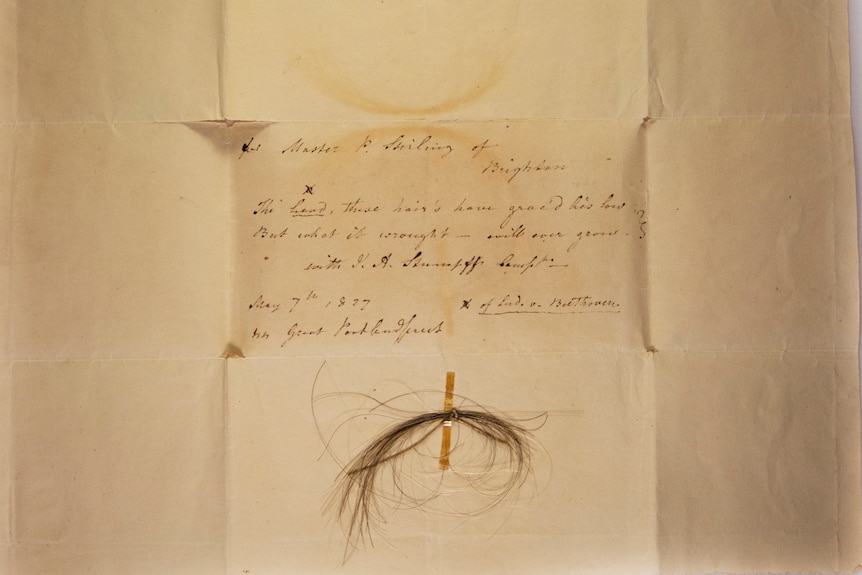 for Master P. Stirling of
Brighton
x
The head, these hair's have grac'd lies low
But what it wrought – will ever grow.
with J. A. Stumpff's Compts –
May 7th, 1827
x of Lud. v. Beethoven.
44 Great Portland Street